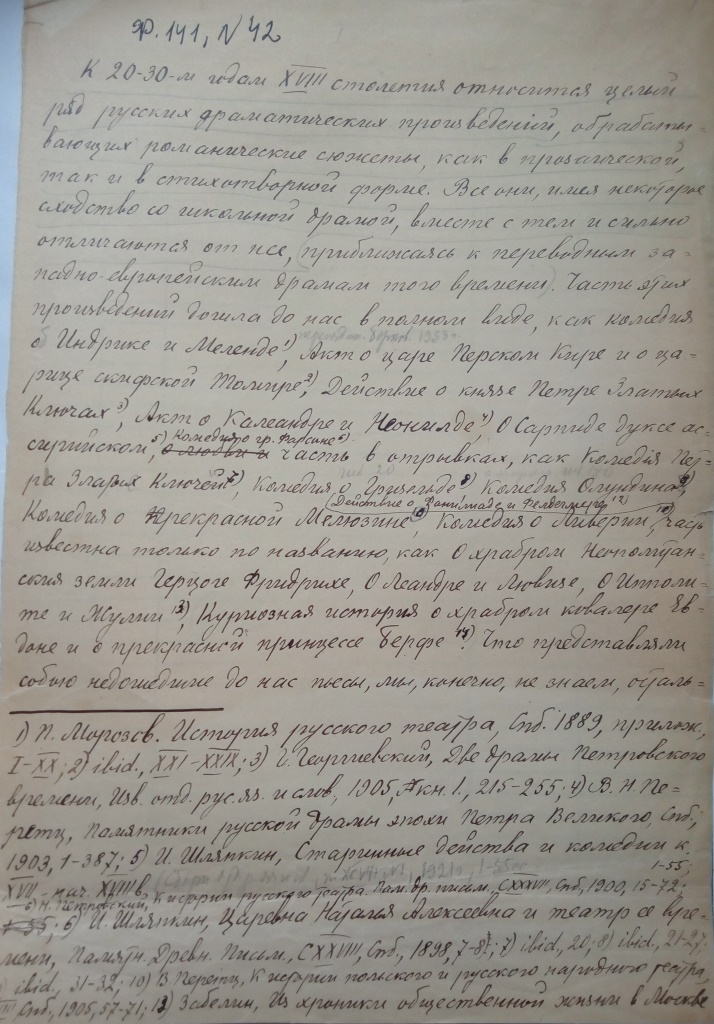 Ф. 141, N 42
К 20-30-м годам XVIII столетия относится целый
ряд русских драматических произведений, обрабаты-
вающих романические сюжеты, как в прозаической,
так и в стихотворной форме. Все они, имея некоторое
сходство со школьной драмой, вместе с тем и сильно
отличаются от нее, (приближаясь к переводным за-
падно-европейским драмам того времени). Часть этих
произведений дошла до нас в полном виде, как комедия
о Индрике и Меленде 1), Акт о царе Перском Кире и о ца-
рице скифской Томире 2), Действие о князе Петре Златых
Ключах 3), Акт о Калеандре и Неонилде 4) О Сарпиде дуксе ас-
сирийском, 5) Комедия о гр. Фарсоне 6). часть в отрывках, как Комедия Пет-
ра Златых Ключей 7), комедия о Гризельде 8) Комедия Олундина 9),
Действие о 12)
Комедия о прекрасной Мелюзине 10), Комедия о Ливерии, часть
известна только по названию, как О храбром Неополитан-
ския земли Герцоге Фридрихе, О Леандре и Лювизе, О Ипполи-
те и Жулии 13), Куриозная история о храбром ковалере Ев-
доне и о прекрасной принцессе Берфе 14). Что представляли
собою недошедшие до нас пьесы, мы, конечно, не знаем, осталь-
1) П. Морозов. История русского театра, Спб. 1889, прилож,
I-XX; 2) ibid., XXI-XXIX; 3) Г. Георгиевский, Две драмы Петровского
времени, Изв. отд. рус. яз. и слов, 1905, кн. 1., 215-255; 4) В. Н. Пе-
ретц, Памятники русской драмы эпохи Петра Великого, Спб.,
1903, 1-387; 5) И. Шляпкин, Старинные действа и комедии к.
1-55;
XVII - нач. XVIII в, к истории русского театра. Пам. др. письм, CXXXVII, Спб, 1900, 15-72;
6) И. Шляпкин, Царевна Наталья Алексеевна и театр ее вре-
мени, Памятн. Древн. Письм, CXXVIII, Спб, 1898, 7-8; 7) ibid, 20; 8) ibid, 21-27;
ibid, 31-32; 10) В Перетц, К истории польского и русского народного театра,
Спб, 1905, 57-71; 13) Забелин, Из хроники общественной жизни в Москве